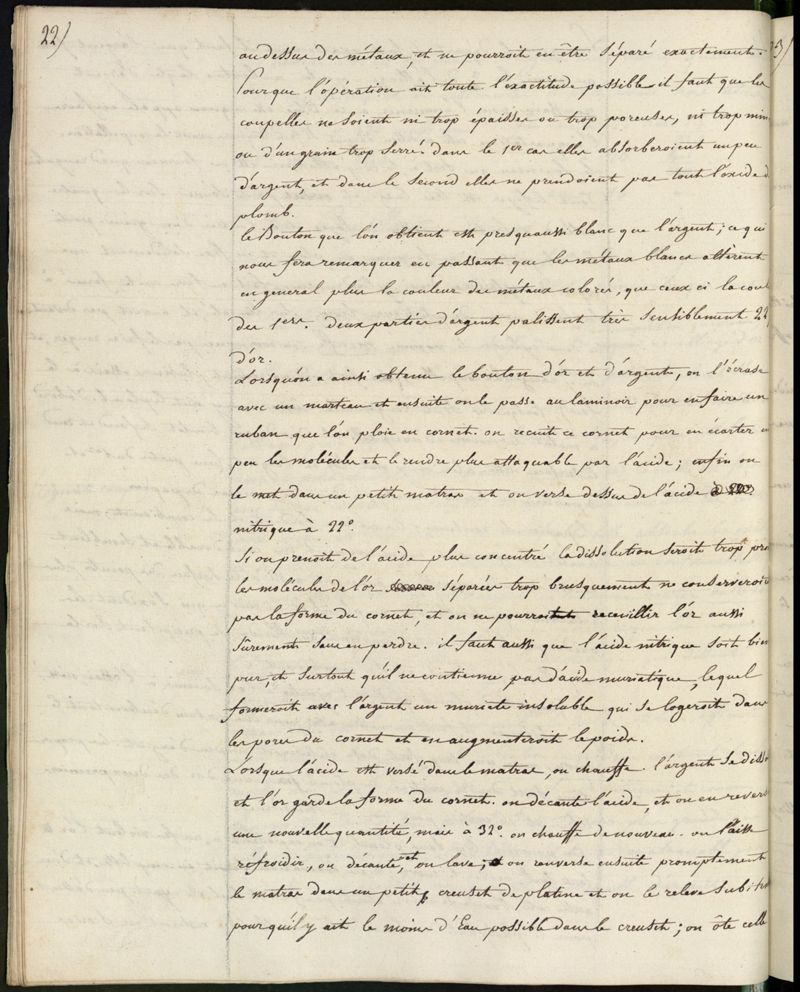 22)
au dessus des métaux, et ne pourroit en être séparé exactement.
Pour que l'opération ait toute l'exactitude possible il faut que les
coupelles ne soient ni trop épaisses ou trop poreuses, ni trop min
ou d'un graine trop serré. dans le 1er cas elles absorberoient un peu
d'argent, et dans le second elles ne prendoient pas tout l'oxide d
plomb.
le Bouton que l'ón obtient est presqu'aussi blanc que l'argent; ce qui
nous fera remarquer en passant que les métaux blancs altèrent
en general plus la couleur des métaux colorés, que ceux ci la coul
des 1ers. deux parties d'argent palissent très sensiblement 24
d'or.
Lorsqu'on a ainsi obtenu le bouton d'or et d'argent, on l'écrase
avec un marteau et ensuite on le passe au laminoir pour en faire un
ruban que l'ón ploie en cornet. on recuit ce cornet pour en écarter u
peu les molécules et le rendre plus attaquable par l'acide; enfin on
le met dans un petit matras et on verse dessus de l'acide
nitrique à 22°.
Si on prenoit de l'acide plus concentré la dissolution seroit trop pro
les molécules de l'or séparées trop brusquement ne conserveroi
pas la forme du cornet, et on ne pourroit recueillir l'or aussi
surement sans en perdre. il faut aussi que l'acide nitrique soit bien
pur, et surtout qu'il ne contienne pas d'acide muriatique, lequel
formeroit avec l'argent un muriate insoluble qui se logeroit dans
les pores du cornet et en augmenteroit le poids.
Lorsque l'acide est versé dans le matras, on chauffe. l'argent se disso
et l'or garde la forme du cornet. on décante l'acide, et on en revers
une nouvelle quantité, mais à 32°. on chauffe de nouveau. on laisse
réfroidir, on décante, et on lave; on renverse ensuite promptement
le matras dans un petit creuset de platine et on le releve subit
pour qu'il y ait le moins d'Eau possible dans le creuset; on ôte celle